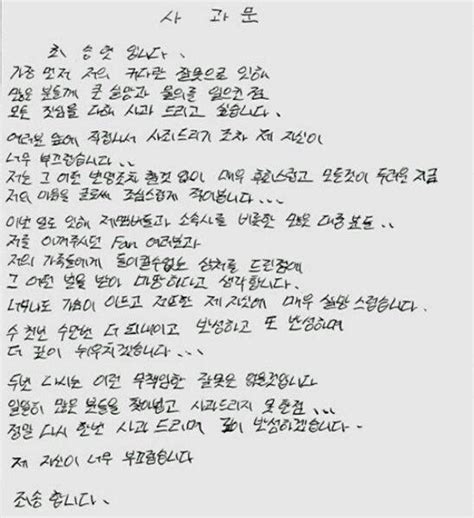 사 과 문
최 승현 입니다.
가장 먼저 저의 커다란 잘못으로 인해
많은 분들께 큰 실망과 물의를 일으킨 점
모든 진심을 다해 사과 드리고 싶습니다.
여러분 앞에 직접나서 사죄드리기 조차 제 자신이
너무 부끄럽습니다..
저는 그 어떤 변명조차 할것 없이 매우 후회스럽고 모든것이 두려운 지금
저의 마음을 글로써 조심스럽게 적어봅니다...
이번 일로 인해 제 멤버들과 소속사를 비롯한 많은 대중 분들..
저를 아껴주시던 Fan 여러분과
저의 가족들에게 돌이킬수없는 상처를 드린점에
그 어떤 벌을 받아 마땅하다고 생각합니다.
너무나도 가슴이 아프고 저조한 제 자신에 매우 실망스럽습니다.
수 천번 수만번 더 되내이고 반성하고 또 반성하며
더 깊이 뉘우치겠습니다...
두번 다시는 이런 무책임한 잘못은 없을것입니다
일일히 많은 분들을 찾아뵙고 사과드리지 못한점...
정말 다시 한번 사과 드리며 깊이 반성하겠습니다.
제 자신이 너무 부끄럽습니다
죄송 합니다.